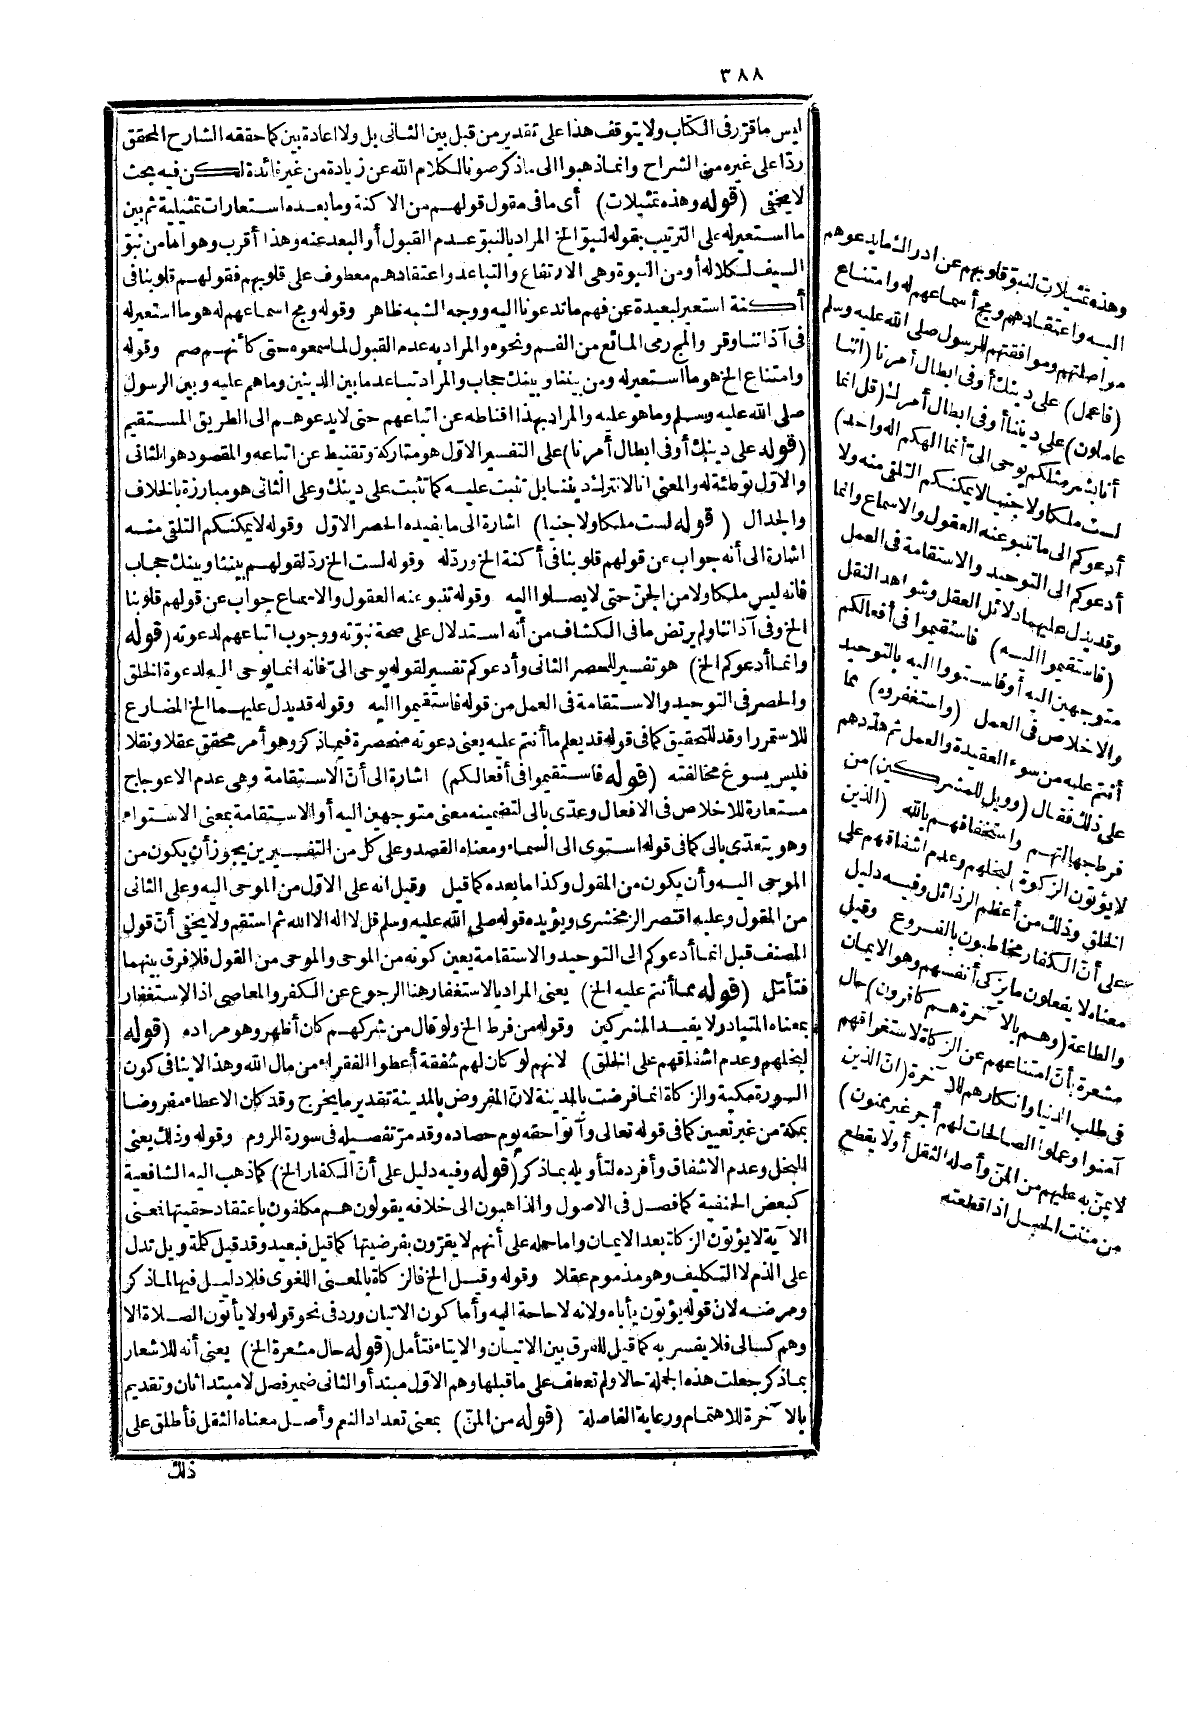 ٣٨٨
ليس ما قرّر فى الكتاب ولا يتوقف هذا على تقدير من قبل بين الثانى بل ولا اعادة بين كما حققه الشارح المحقق
ردّا على غيره من الشراح وانما ذهبوا الى ما ذكر صونا لكلام الله عن زيادة من غير فائدة لكن فيه بحث
لا يخفى (قوله وهذه تمثيلات) أى ما فى مقول قولهم من الاكنة وما بعده استعارات تمثيلية ثم بين
ما استعير له على الترتيب بقوله لنبوّ الخ المراد بالنبوّ عدم القبول أو البعد عنه وهذا أقرب وهو اما من نبوّ
السيف لكلاله أو من النبوة وهى الارتفاع والتباعد واعتقادهم معطوف على قلوبهم فقولهم قلوبنا فى
أكنة استعير لبعيدة عن فهم ما تدعونا اليه ووجه الشبه ظاهر وقوله ومج اسماعهم له هو ما استعير له
فى آذاننا وقر والمج رمى المائع من الفم ونحوه والمراد به عدم القبول لما سمعوه حتى كأنهم صم وقوله
وامتناع الخ هو ما استعير له ومن بيننا وبينك حجاب والمراد تباعد ما بين الدينين وما هم عليه وبين الرسول
صلى الله عليه وسلم وما هو عليه والمراد بهذا اقناطه عن اتباعهم حتى لا يدعوهم الى الطريق المستقيم
(قوله على دينك أو فى ابطال أمرنا) على التفسير الاوّل هو متاركة وتقنيط عن اتباعه والمقصود هو الثانى
والاوّل توطئة له والمعنى انا لا نترك ديننا بل نثبت عليه كما تثبت على دينك وعلى الثانى هو مبارزة بالخلاف
والجدال (قوله لست ملكا ولا جنيا) اشارة الى ما يفيده الحصر الاوّل وقوله لا يمكنكم التلقى منه
اشارة الى أنه جواب عن قولهم قلوبنا فى أكنة الخ وردّ له وقوله لست الخ ردّ لقولهم بيننا وبينك حجاب
فانه ليس ملكا ولا من الجنّ حتى لا يصلوا اليه وقوله تنبو عنه العقول والاسماع جواب عن قولهم قلوبنا
الخ وفى آذاننا ولم يرتض ما فى الكشاف من أنه استدلال على صحة نبوّته ووجوب اتباعهم لدعوته (قوله
وانما أدعوكم الخ) هو تفسير للحصر الثانى وأدعوكم تفسير لقوله يوحى الىّ فانه انما يوحى اليه لدعوة الخلق
والحصر فى التوحيد والاستقامة فى العمل من قوله فاستقيموا اليه وقوله قد يدل عليهما الخ المضارع
للاستمرار وقد للتحقيق كما فى قوله قد يعلم ما أنتم عليه يعنى دعوته منحصرة فيما ذكر وهو أمر محقق عقلا ونقلا
فليس يسوغ مخالفته (قوله فاستقيموا فى أفعالكم) اشارة الى أنّ الاستقامة وهى عدم الاعوجاج
مستعارة للاخلاص فى الافعال وعدّى بالى لتضمينه معنى متوجهين اليه أو الاستقامة بمعنى الاستواء
وهو يتعدّى بالى كما فى قوله استوى الى السماء ومعناه القصد وعلى كل من التفسيرين يجوز أن يكون من
الموحى اليه وأن يكون من المقول وكذا ما بعده كما قيل وقيل انه على الاوّل من الموحى اليه وعلى الثانى
من المقول وعليه اقتصر الزمخشرى ويؤيده قوله صلى الله عليه وسلم قل لا اله الا الله ثم استقم ولا يخفى أنّ قول
المصنف قبل انما أدعوكم الى التوحيد والاستقامة يعين كونه من الموحى والموحى من القول فلا فرق بينهما
فتأمّل (قوله مما أنتم عليه الخ) يعنى المراد بالاستغفار هنا الرجوع عن الكفر والمعاصى اذ الاستغفار
بمعناه المتبادر لا يفيد المشركين وقوله من فرط الخ ولو قال من شركهم كان أظهر وهو مراده (قوله
لبخلهم وعدم اشفاقهم على الخلق) لانهم لو كان لهم شفقة أعطوا الفقراء من مال الله وهذا لا ينافى كون
السورة مكية والزكاة انما فرضت بالمدينة لانّ المفروض بالمدينة تقدير ما يخرج وقد كان الاعطاء مفروضا
بمكة من غير تعيين كما فى قوله تعالى وآتوا حقه يوم حصاده وقد مرّ تفصيله فى سورة الروم وقوله وذلك يعنى
البخل وعدم الاشفاق وأفرده لتأويله بما ذكر (قوله وفيه دليل على أنّ الكفار الخ) كما ذهب اليه الشافعية
كبعض الحنفية كما فصل فى الاصول والذاهبون الى خلافه يقولون هم مكلفون باعتقاد حقيتها فمعنى
الآية لا يؤتون الزكاة بعد الايمان واما حمله على أنهم لا يقرّون بفرضيتها كما قيل فبعيد وقد قيل كلمة ويل تدل
على الذم لا التكليف وهو مذموم عقلا وقوله وقيل الخ فالزكاة بالمعنى اللغوى فلا دليل فيها لما ذكر
ومرضه لانّ قوله يؤتون يأباه ولانه لا حاجة اليه وأما كون الاتيان ورد فى نحو قوله ولا يأتون الصلاة الا
وهم كسالى فلا يفسر به كما قيل للفرق بين الاتيان والايتاء فتأمل (قوله حال مشعرة الخ) يعنى أنه للاشعار
بما ذكر جعلت هذه الجملة حالا ولم تعطف على ما قبلها وهم الاول مبتدأ والثانى ضمير فصل لا مبتدا ثان وتقديم
بالآخرة للاهتمام ورعاية الفاصلة (قوله من المنّ) بمعنى تعداد النعم وأصل معناه الثقل فأطلق على
ذلك
وهذه تمثيلات لنبوّ قلوبهم عن ادراك ما يدعوهم
اليه واعتقادهم ومج أسماعهم له وامتناع
مواصلتهم وموافقتهم للرسول صلى الله عليه وسلم
(فاعمل) على دينك أو فى ابطال أمرنا (اننا
عاملون) على ديننا أو فى ابطال أمرك (قل انما
أنا بشر مثلكم يوحى الىّ أنما الهكم اله واحد)
لست ملكا ولا جنيا لا يمكنكم التلقى منه ولا
أدعوكم الى ما تنبو عنه العقول والاسماع وانما
أدعوكم الى التوحيد والاستقامة فى العمل
وقد يدل عليهما دلائل العقل وشواهد النقل
(فاستقيموا اليه) فاستقيموا فى أفعالكم
متوجهين اليه أو فاستووا اليه بالتوحيد
والاخلاص فى العمل (واستغفروه) مما
أنتم عليه من سوء العقيدة والعمل ثم هدّدهم
على ذلك فقال (وويل للمشركين) من
فرط جهالتهم واستخفافهم بالله (الذين
لا يؤتون الزكوة) لبخلهم وعدم اشفاقهم على
الخلق وذلك من أعظم الرذائل وفيه دليل
على أنّ الكفار مخاطبون بالفروع وقيل
معناه لا يفعلون ما يزكى أنفسهم وهو الايمان
والطاعة (وهم بالآخرة هم كافرون) حال
مشعرة بأنّ امتناعهم عن الزكاة لاستغراقهم
فى طلب الدنيا وانكارهم للآخرة (ان الذين
آمنوا وعملوا الصالحات لهم أجر غير ممنون)
لا يمنّ به عليهم من المنّ وأصله الثقل أو لا يقطع
من مننت الحبل اذا قطعته